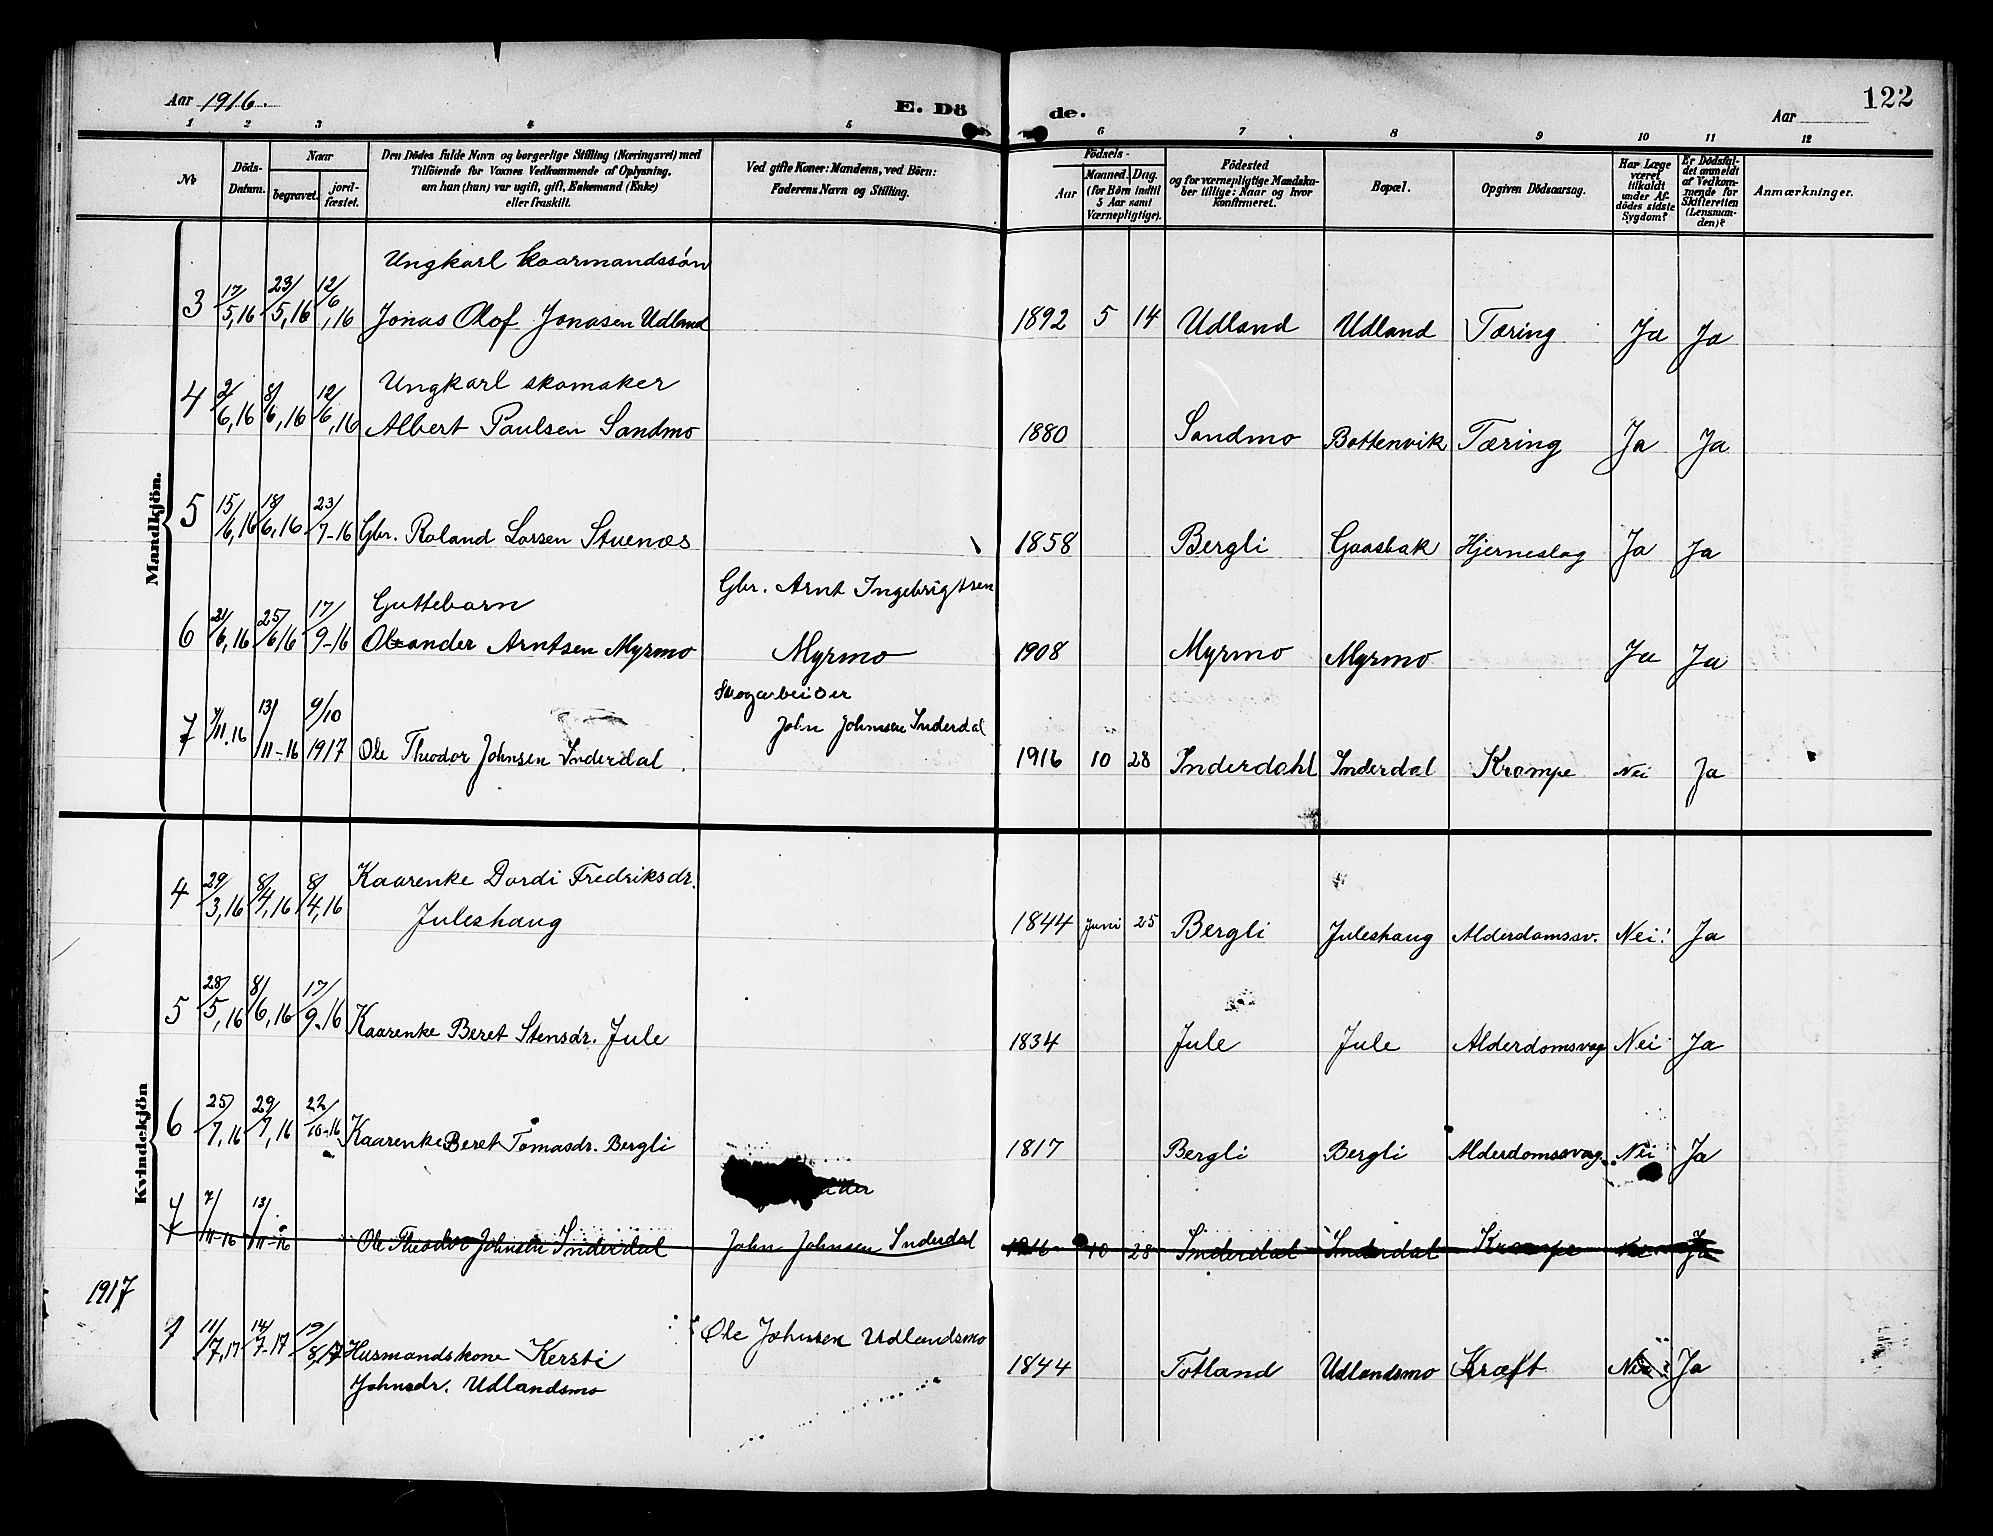 Aar 1916. E. Dö de. Aar 122
1 2 3 4 5 6 7 8 9 10 11 12
№
Döds-Datum.
Naar
begravet.
jord-fæstet.
Den Dödes fulde Navn og borgerlige Stilling (Næringsvei) med
Tilföiende for Voxnes Vedkommende af Oplysning,
om han (hun) var ugift, gift, Enkemand (Enke)
eller fraskilt.
Ved gifte Koner: Mandens, ved Börn:
Faderens Navn og Stilling.
Födsels-
Aar
Maaned. Dag.
(for Börn indtil
5 Aar samt
Værnepligtige).
Födested
og for værnepligtige Mandska-
ber tillige: Naar og hvor
Konfirmeret.
Bopæl.
Opgiven Dödsaarsag.
Har Læge
været
tilkaldt
under Af-
dödes sidste
Sygdom?
Er Dödsfal-
det anmeldt
af Vedkom-
mende for
Skifteretten
(Lensman-
den)?
Anmærkninger.
Mandkjön.
Ungkarl kaarmandssön
3 17/5,16 23/5,16 12/6,16 Jonas Olof Jonasen Udland 1892 5 14 Udland Udland Tæring Ja Ja
Ungkarl skomaker
4 2/6,16 8/6,16 12/6,16 Albert Paulsen Sandmo 1880 Sandmo Bottenvik Tæring Ja Ja
5 15/6,16 18/6,16 23/7-16 Gbr. Roland Larsen Stuenæs 1858 Bergli Gaasbak Hjerneslag Ja Ja
Guttebarn Gbr. Arnt Ingebrigtsen
6 21/6,16 25/6 16 17/9-16 Oleander Arntsen Myrmo Myrmo 1908 Myrmo Myrmo Ja Ja
Skogarbeider
John Johnsen Inderdal
7 7/11.16 13/11-16 9/10 1917 Ole Theodor Johnsen Inderdal 1916 10 28 Inderdahl Inderdal Krampe Nei Ja
Kvindekjön
4 29/3,16 8/4,16 8/4,16 Kaarenke Dordi Fredriksdr.
Juleshaug 1844 Juni 25 Bergli Juleshaug Alderdomssv. Nei! Ja
5 28/5,16 8/6,16 17/9-16 Kaarenke Beret Stensdr. Jule 1834 Jule Jule Alderdomsvag Nei Ja
6 25/7,16 29/7,16 22/10-16 Kaarenke Beret Tomasdr. Bergli 1817 Bergli Bergli Alderdomssvag Nei Ja
7 7/11-16 13/11-16 Ole Theodor Johnsen Inderdal John Johnsen Inderdal 1916 10 28 Inderdal Inderdal Krampe Nei Ja
1917
1 11/7,17 14/7-17 19/8,17 Husmandskone Kersti Ole Johnsen Udlandsmo 1844 Totland Udlandsmo Kræft Nei Ja
Johnsdr. Udlandsmo